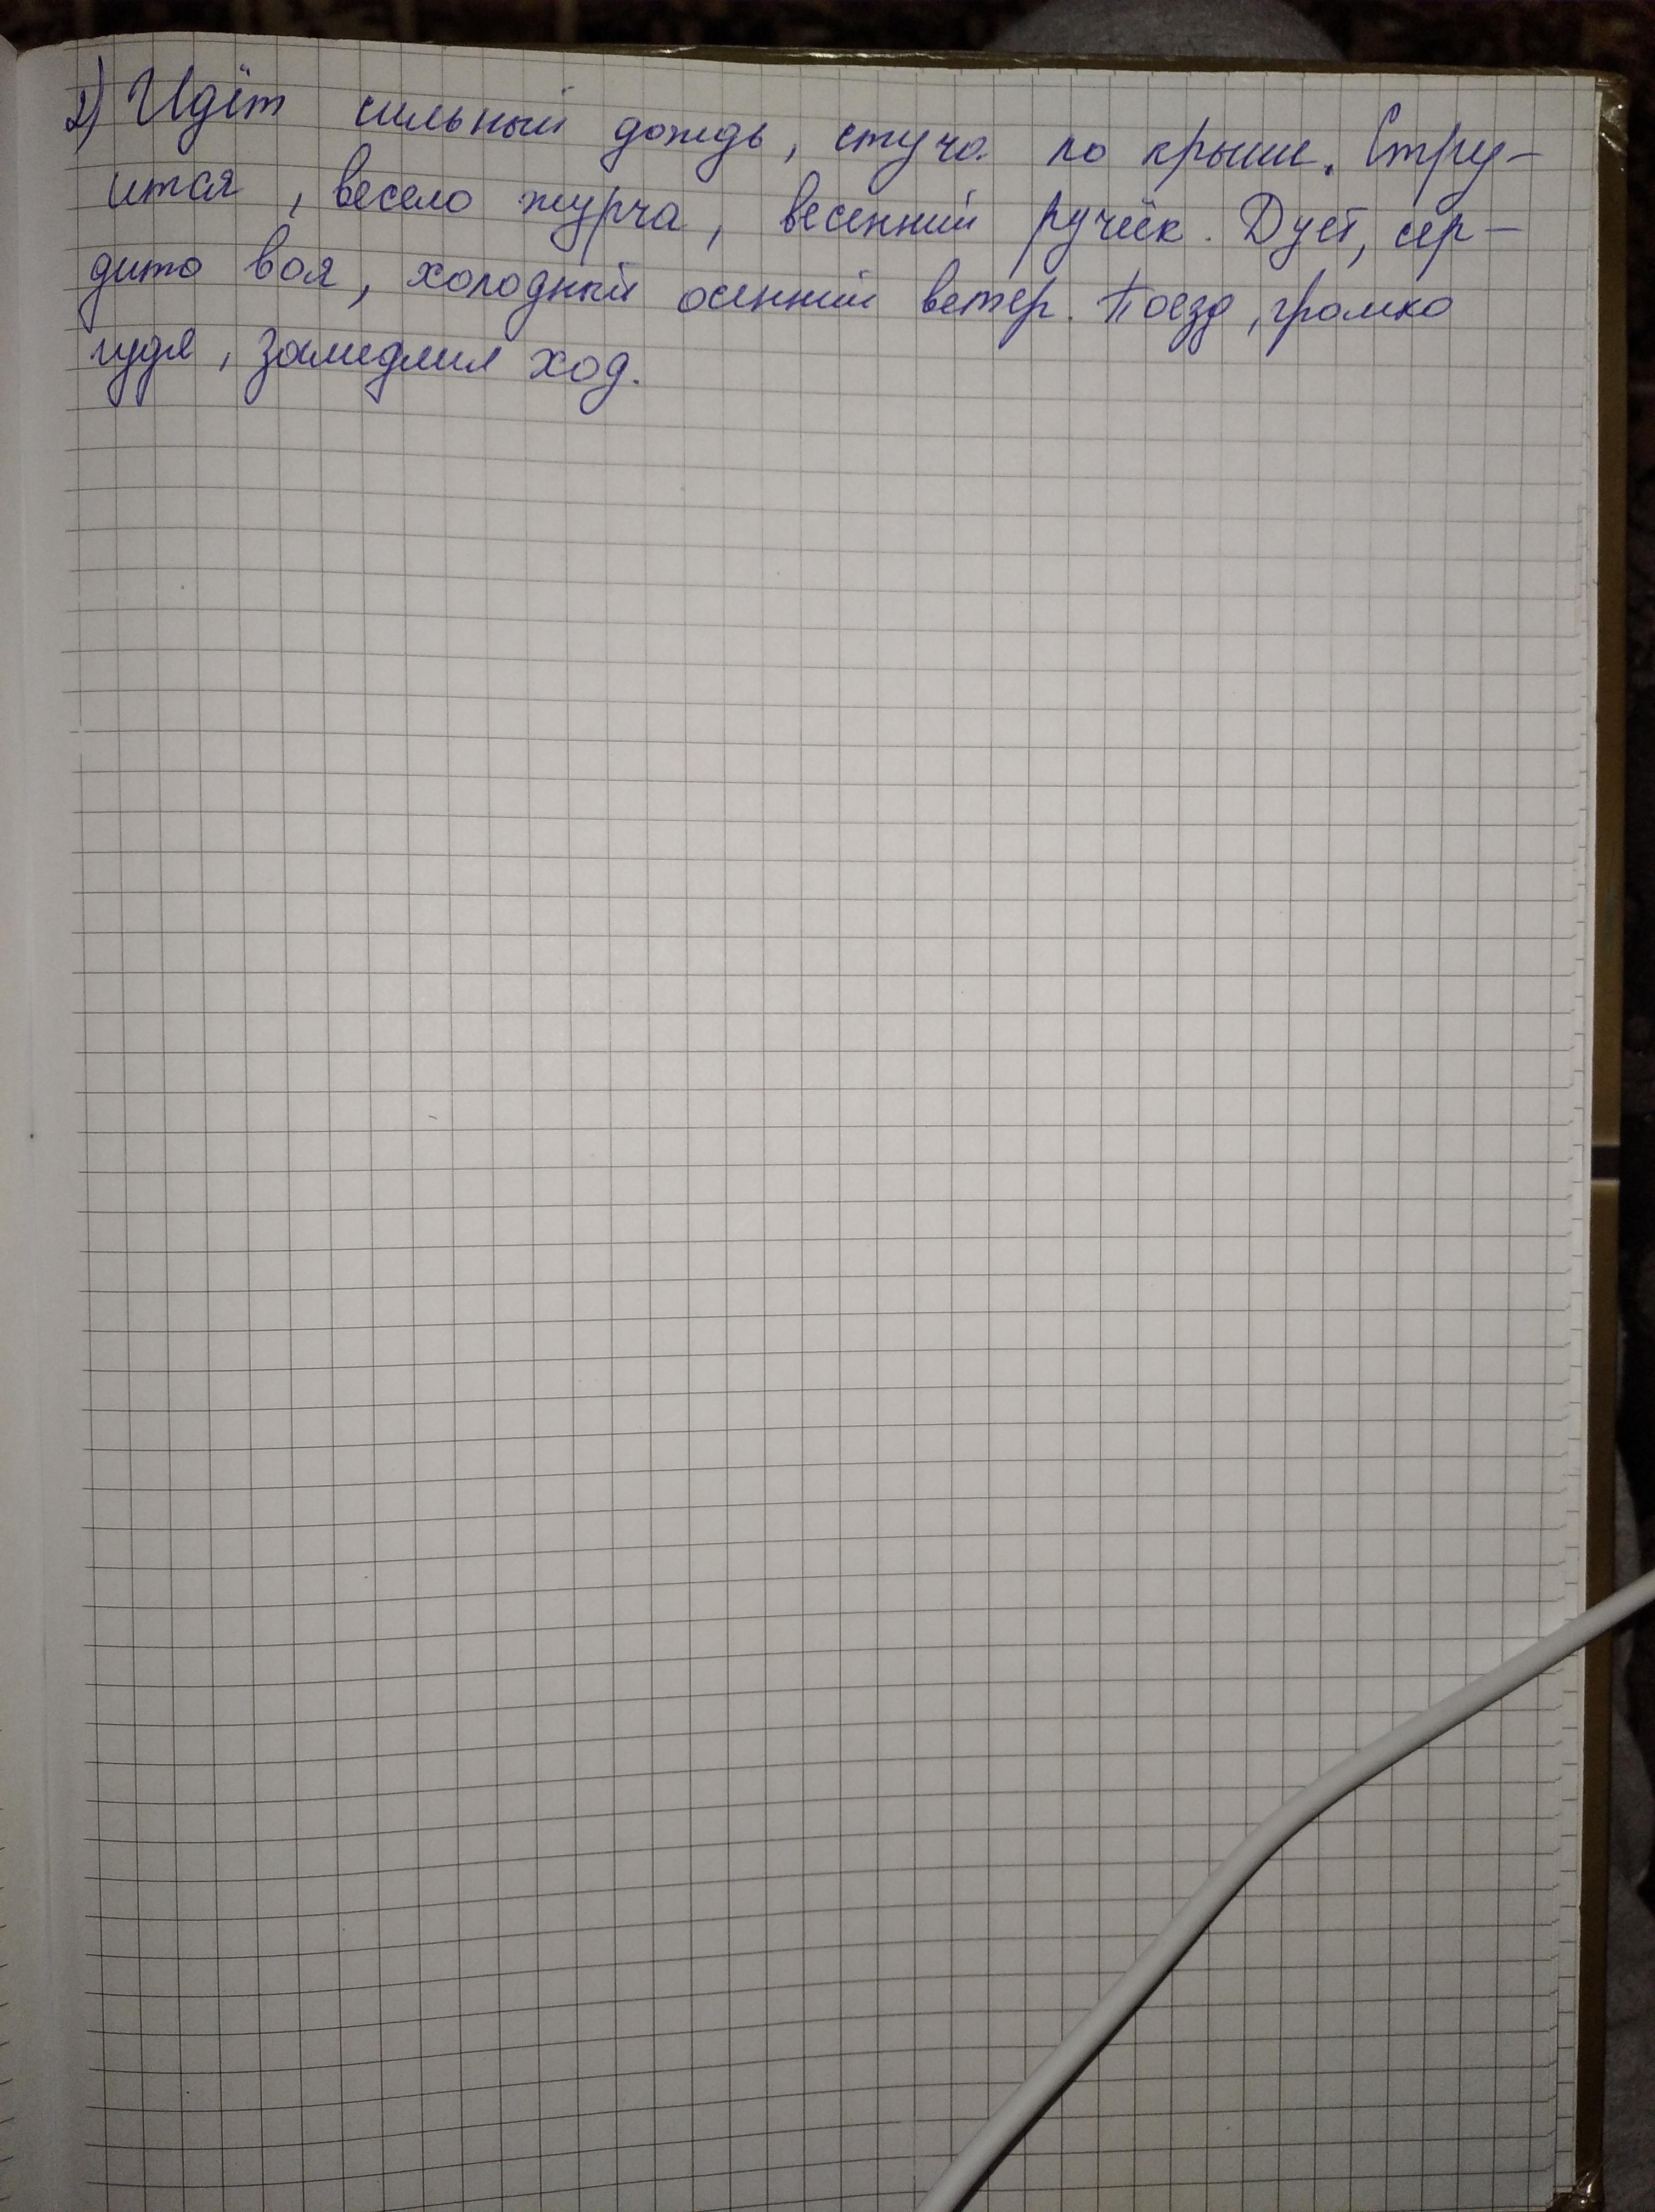 2) Идёт сильный дождь, стуча по крыше. Стру-
ится, весело журча, весенний ручеёк. Дует, сер-
дито воя, холодный осенний ветер. Поезд, громко
гудя, замедлил ход.